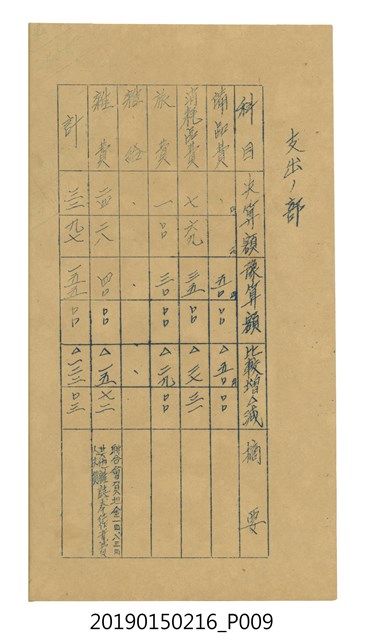 支出ノ部
科目 決算額 豫算額 比較增△減 摘要
備品費 . 五〇 〇〇 △五〇 〇〇
消耗品費 七 六九 三五 〇〇 △二七 三一
旅費 一 〇〇 三〇 〇〇 △二九 〇〇
雜給 . . .
雜費 二四 二八 四〇 〇〇 △一五 七二
計 三二 九七 一五五 〇〇 △一二二 〇三
20190150216_P009